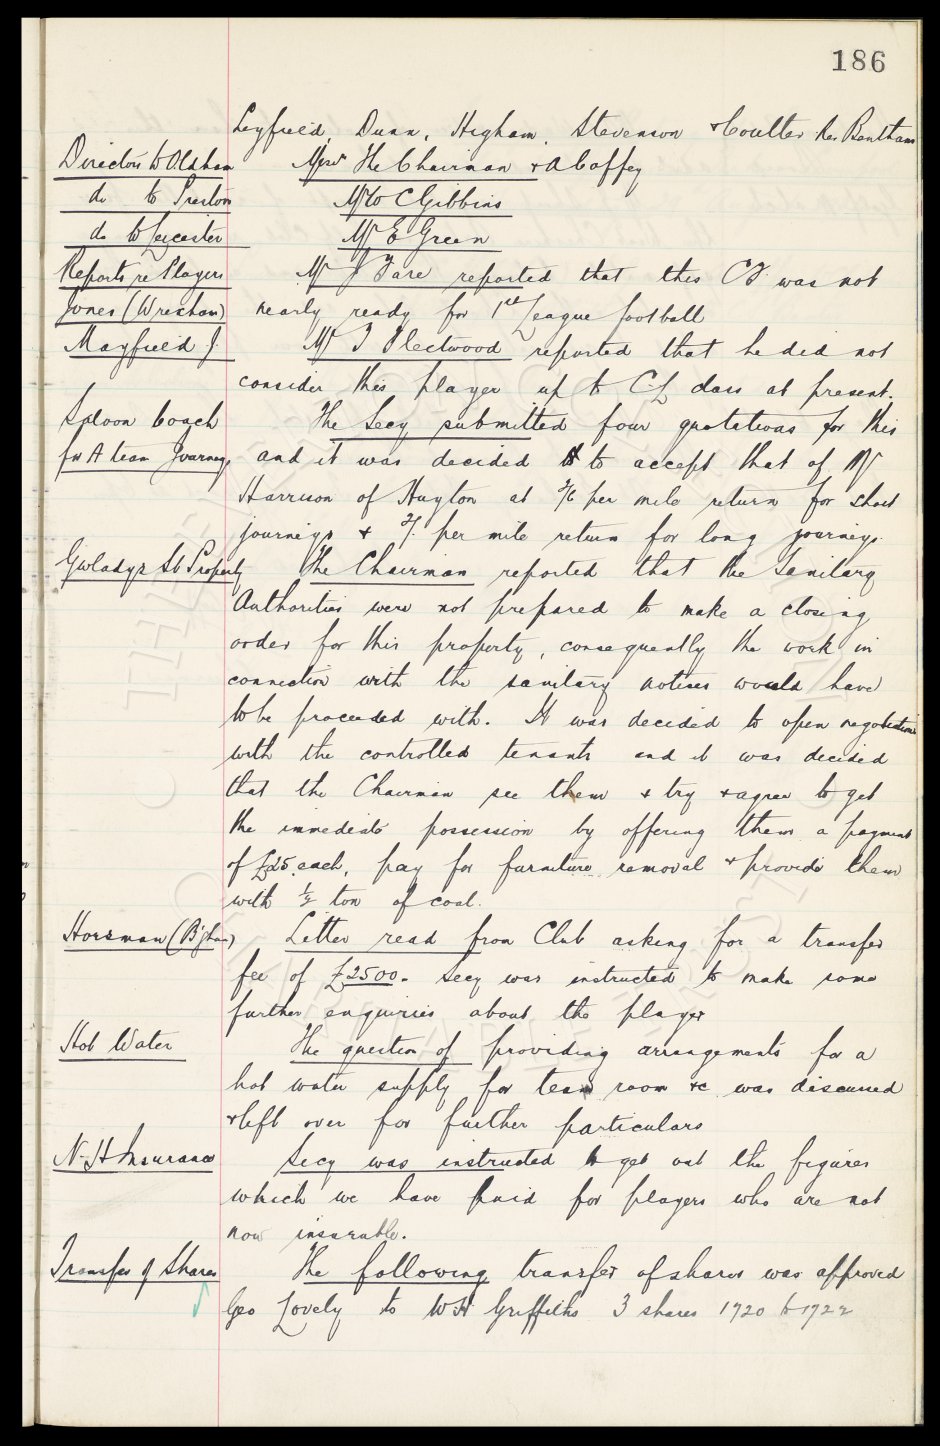 186
Leyfield, Dunn, Higham, Stevenson & Coulter Res Bentham
Directors to Oldham Messrs The Chairman & A Coffey
do to Preston Mr W C Gibbins
do to Leicester Mr E Green
Reports re Players Mr J Fare reported that this CF was not
Jones (Wrexham) nearly ready for 1st League football
Mayfield J. Mr T Fleetwood reported that he did not
consider this player up to C.L class at present.
Saloon Coach The Secy submitted four quotations for this
for A team Journeys and it was decided to accept that of Mr
Harrison of Huyton at 2/6 per mile return for short
journeys & 2/- per mile return for long journeys.
Gwladys St Property The Chairman reported that the Sanitary
Authorities were not prepared to make a closing
order for this property, consequently the work in
connection with the sanitary notices would have
to be proceeded with. It was decided to open negotiations
with the controlled tenants and it was decided
that the Chairman see them & try & agree to get
the immediate possession by offering them a payment
of £25 each, pay for furniture removal & provide them
with ½ ton of coal.
Horsman (B'gham) Letter read from Club asking for a transfer
fee of £2500. Secy was instructed to make some
further enquiries about the player
Hot Water The question of providing arrangements for a
hot water supply for team room &c was discussed
& left over for further particulars
N.H Insurance Secy was instructed to get out the figures
which we have paid for players who are not
now insurable.
Transfer of Shares The following transfer of shares was approved
Geo Lovely to W H Griffiths 3 shares 1720 to 1722